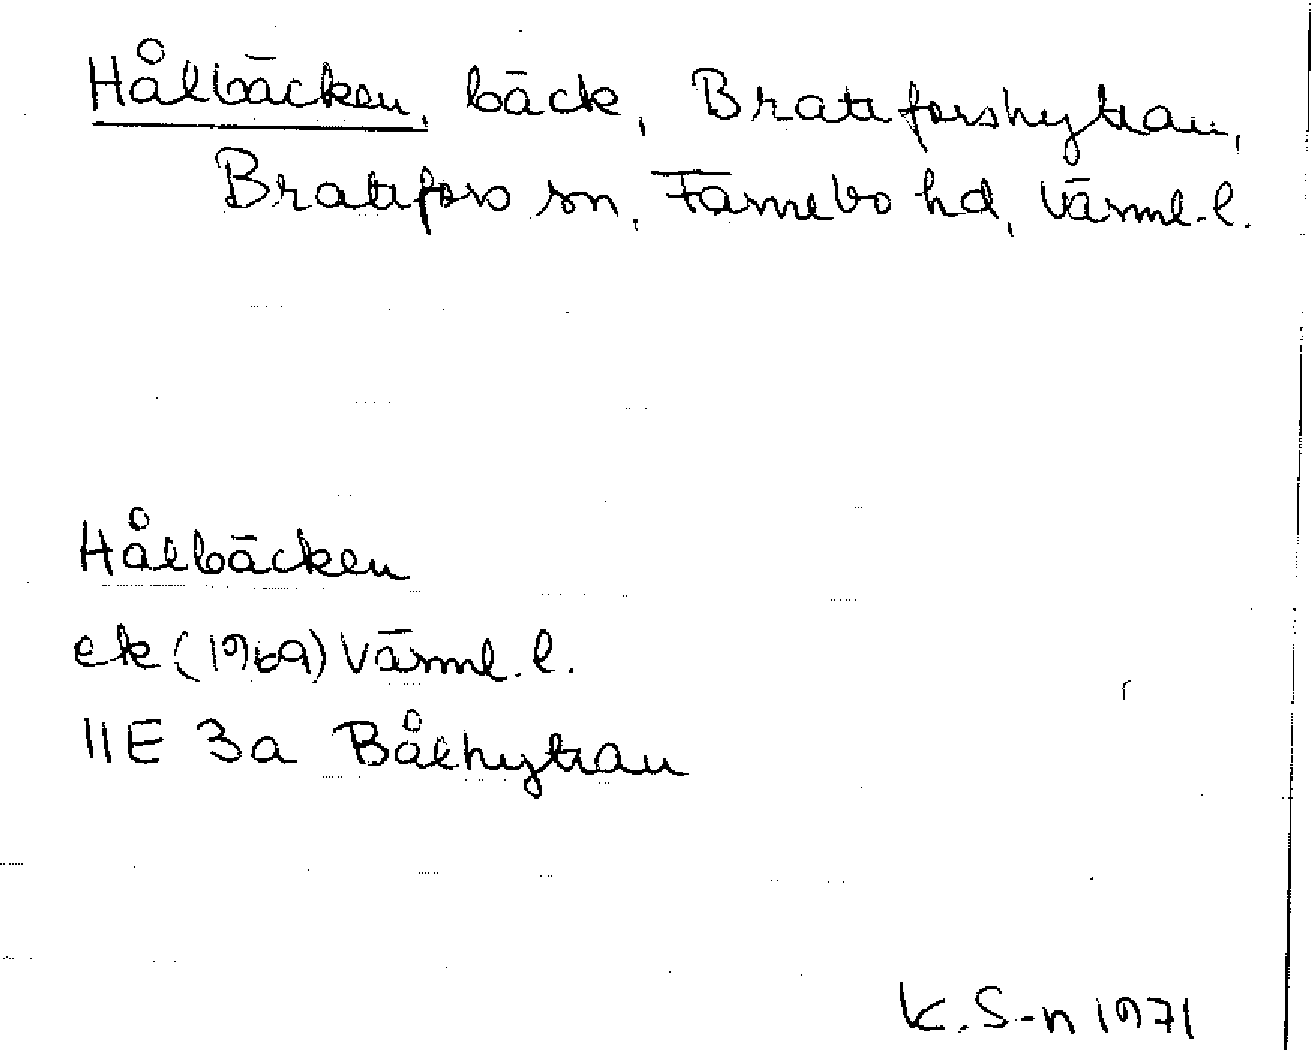 Hålbäcken, bäck, Brattforshyttan,
Brattfors sn, Färnebo hd, Värml. l.
Hålbäcken
ek (1969) Värml. l.
11E 3a Bålhyttan
K. S-n 1971